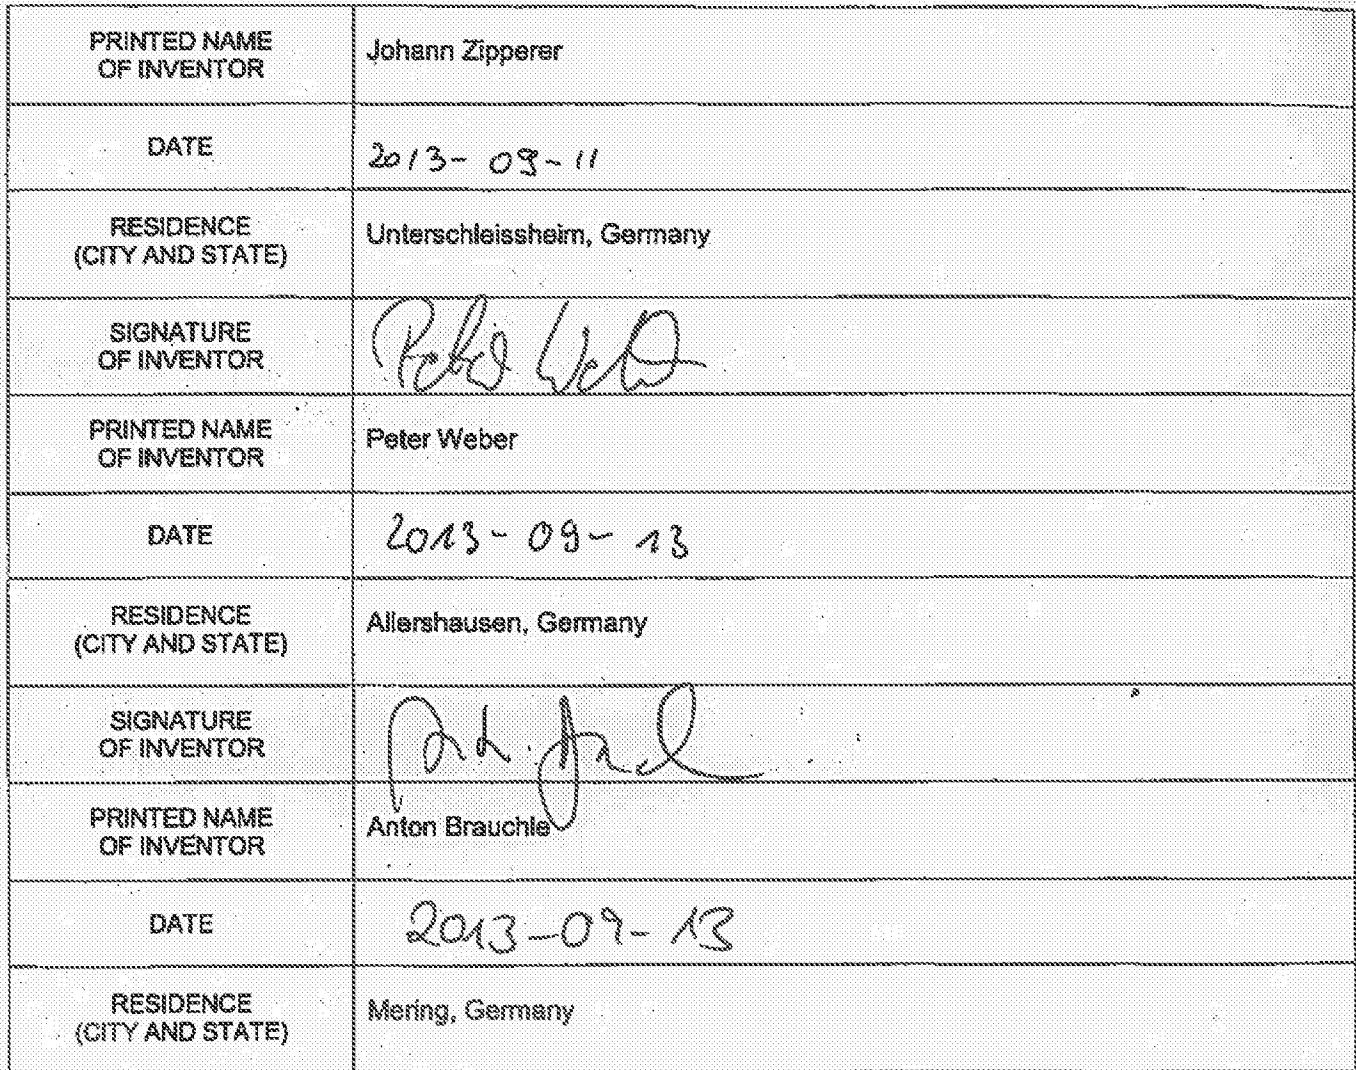 PRINTED NAME
OF INVENTOR
Johann Zipperer
DATE
2013-09-11
RESIDENCE
(CITY AND STATE)
Unterschleissheim, Germany
SIGNATURE
OF INVENTOR
Peter Weber
PRINTED NAME
OF INVENTOR
Peter Weber
DATE
2013-09-13
RESIDENCE
(CITY AND STATE)
Allershausen, Germany
SIGNATURE
OF INVENTOR
PRINTED NAME
OF INVENTOR
Anton Brauchle
DATE
2013-09-13
RESIDENCE
(CITY AND STATE)
Mering, Germany